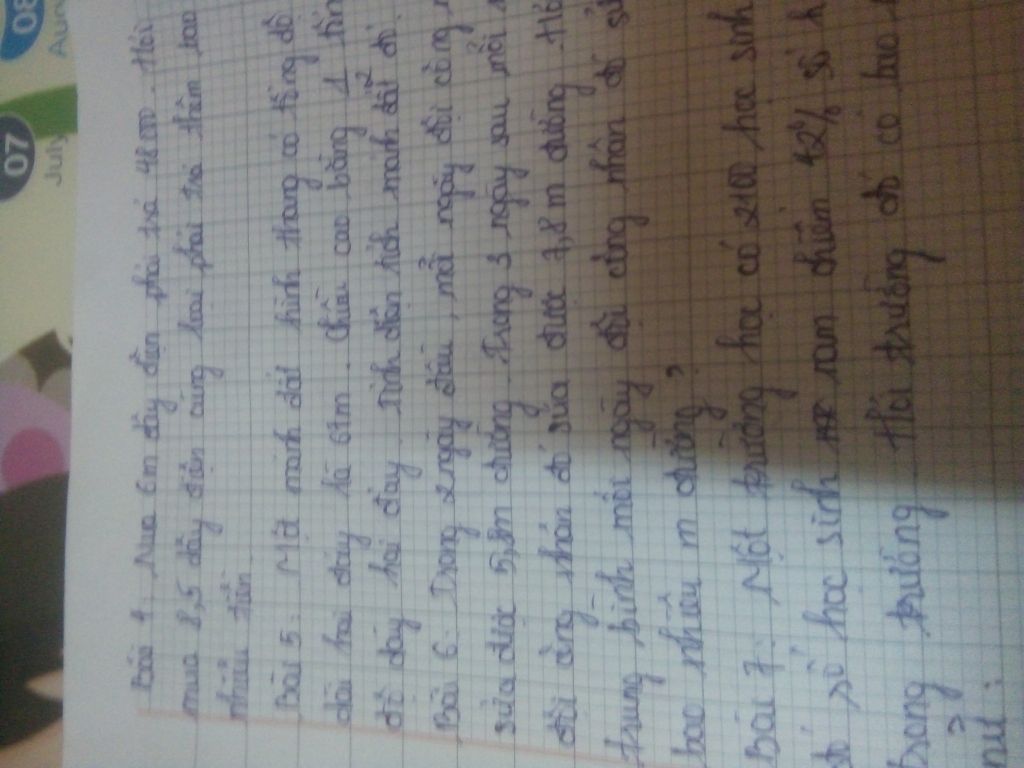 Bài 4: Mua 6m dây điện phải trả 48000. Hỏi
mua 8,5 dây điện cùng loại phải trả thêm bao
nhiêu tiền
Bài 5: Một mảnh đất hình thang có tổng độ
dài hai đáy là 67m. Chiều cao bằng 1/2
độ dáy hai đáy. Tính diện tích mảnh đất đó.
Bài 6: Trong 2 ngày đầu, mỗi ngày đội công
sửa được 5,8m đường. Trong 3 ngày sau mỗi
đội công nhân đó sửa được 7,8 m đường. Hỏi
trung bình mỗi ngày đội công nhân đó
bao nhiêu m đường?
Bài 7: Một trường học có 2100 học sinh
đó số học sinh nam chiếm 42% số
trong trường. Hỏi trường đó có bao
nữ:
07
July
08